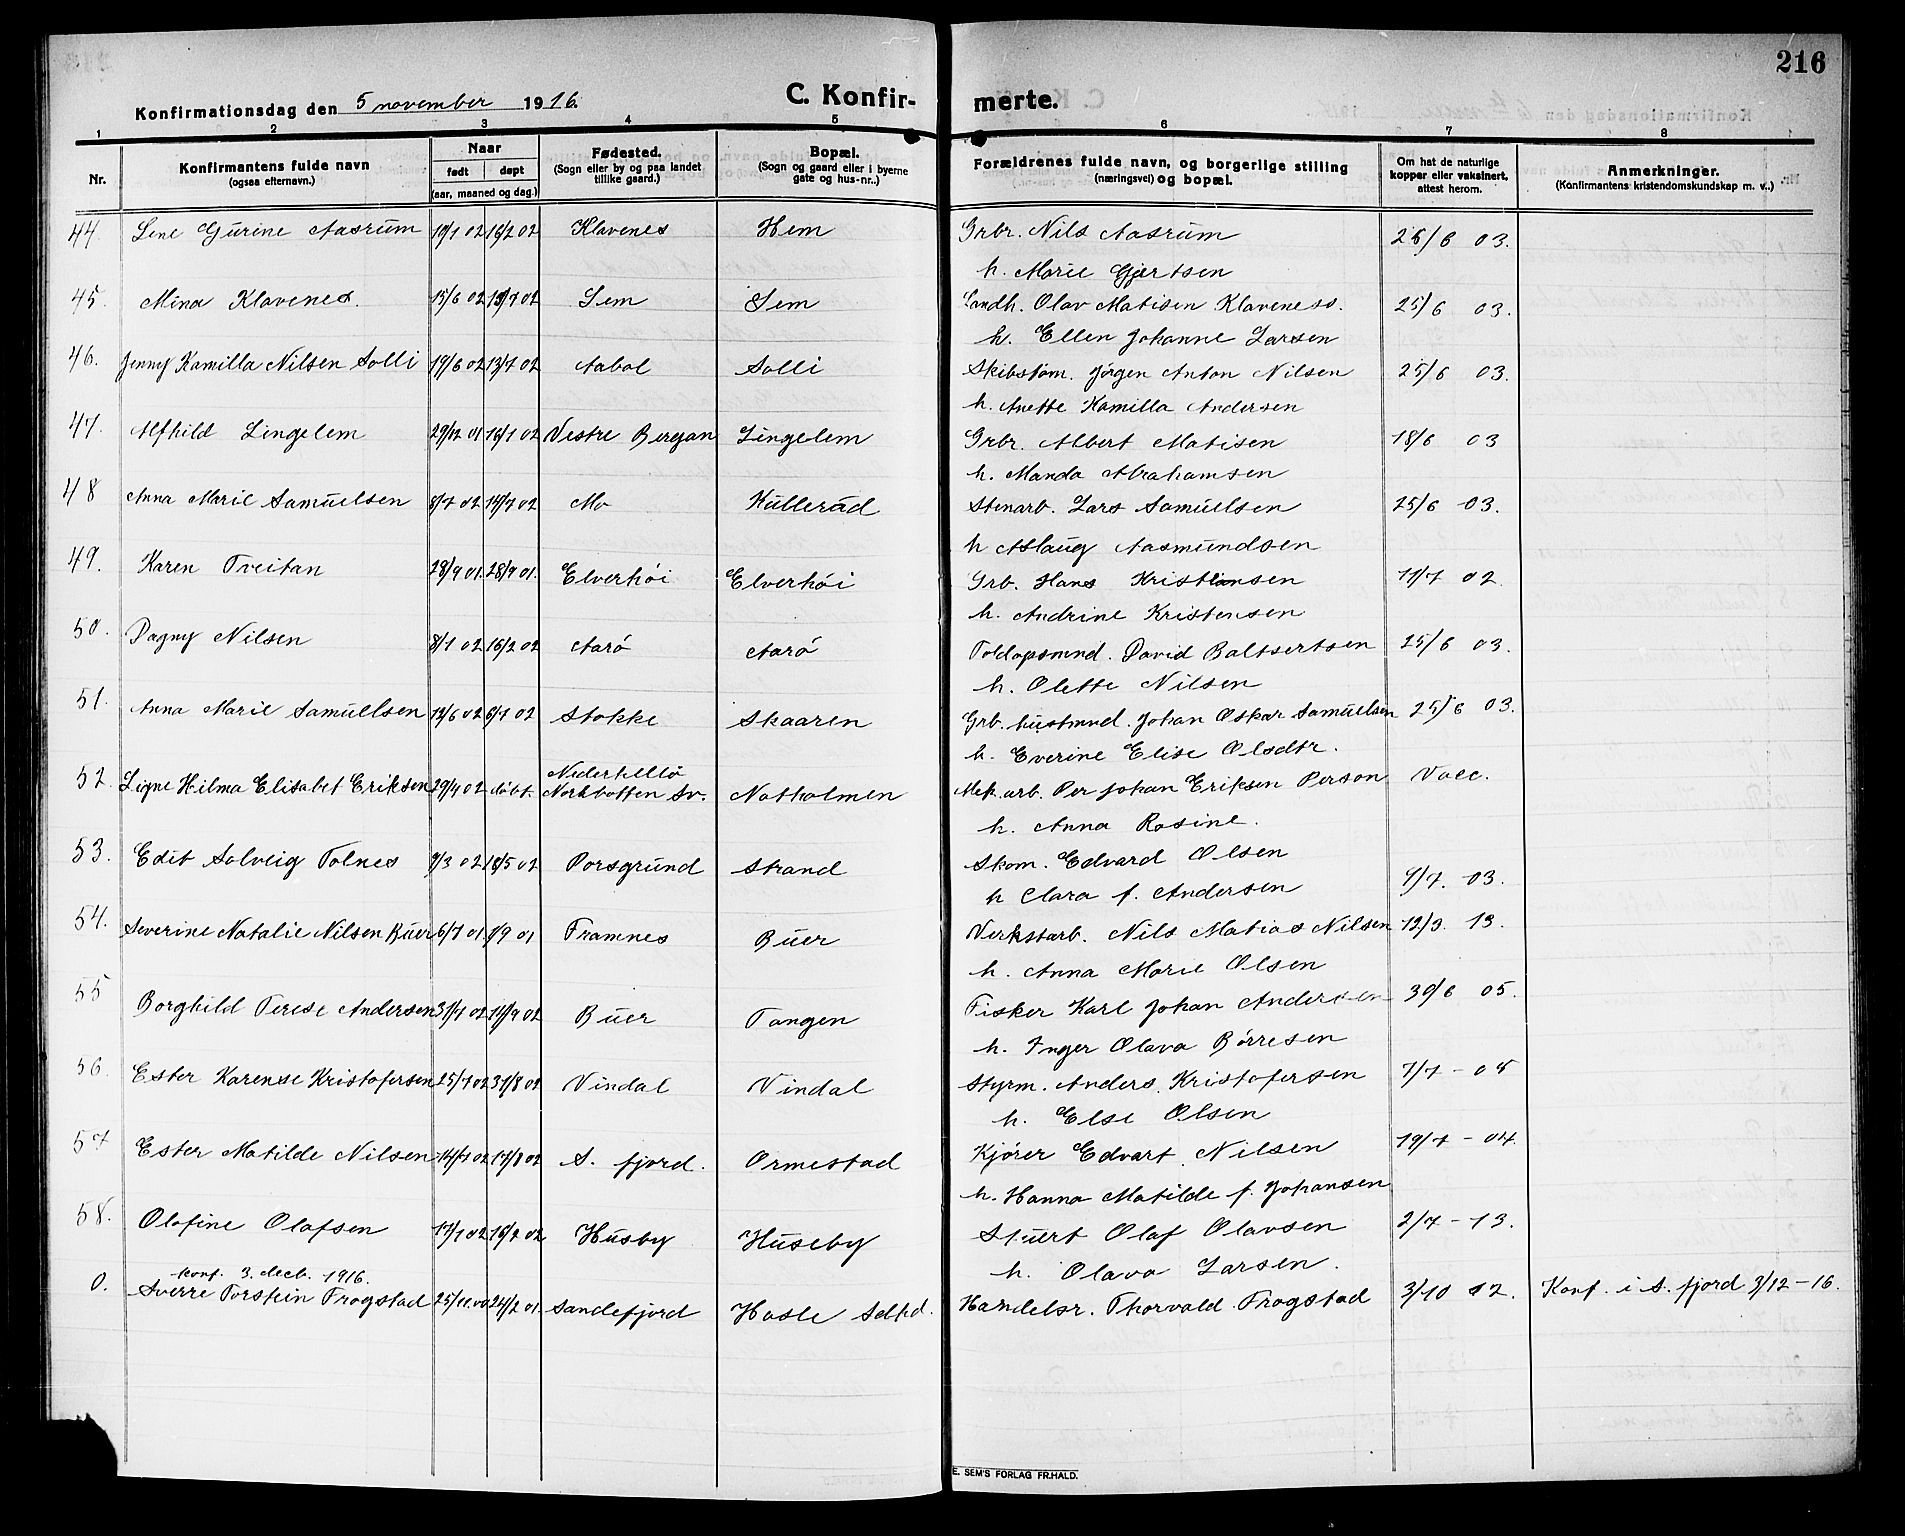 216
Konfirmationsdag den 5 november 1916.
C. Konfir- merte.
1 2 3 4 5 6 7 8
Nr.
Konfirmantens fulde navn
(ogsaa efternavn.)
Naar
født døpt
(aar, maaned og dag.)
Fødested.
(Sogn eller by og paa landet
tillike gaard.)
Bopæl.
(Sogn og gaard eller i byerne
gate og hus-nr.)
Forældrenes fulde navn, og borgerlige stilling
(næringsvei) og bopæl.
Om hat de naturlige
kopper eller vaksinert,
attest herom.
Anmerkninger.
(Konfirmantens kristendomskundskap m. v.)
44. Lene Gurine Aasrum 19/1 02 16/2 02 Klavenes Hem Grbr. Nils Aasrum 26/6 03.
h. Marie Gjertsen
45. Mina Klavenes. 15/6 02 13/7 02 Sem Sem Landh. Olav Matisen Klaveness. 25/6 03.
h. Ellen Johanne Larsen
46. Jenny Kamilla Nilsen Solli 19/6 02 13/7 02 Aabol Solli Skibstøm. Jørgen Anton Nilsen 25/6 03.
h. Anette Kamilla Andersen
47. Alfhild Lingelem 29/12 01 16/1 02 Vestre Bergan Lingelem Grbr. Albert Matisen 18/6 03
h. Manda Abrahamsen
48 Anna Marie Samuelsen 8/7 02 14/7 02 Mo Kullerud Stenarb. Lars Samuelsen 25/6 03.
h Aslaug Aasmundsen
49. Karen Tveitan 28/9 01. 28/9 01. Elverhøi Elverhøi Grb. Hans Kristiansen 11/7 02.
h. Andrine Kristensen
50. Dagny Nilsen 8/1 02 16/2 02 Aarø Aarø Toldopsmnd. David Baltsertsen 25/6 03.
h. Olette Nilsen
51. Anna Marie Samuelsen 12/6 02 6/7 02 Stokke Skaaren Grb. hustmnd. Johan Oskar Samuelsen 25/6 03.
h. Everine Elise Olsdtr.
52. Signe Hilma Elisabet Eriksen 29/4 02 døbt. Nederhellö
Norkbotten Sv. Natholmen Mek. arb. Per Johan Eriksen Person Vacc.
h. Anna Rosine.
53. Edit Solveig Tolnes 9/3 02 18/5 02 Porsgrund Strand Skom. Edvard Olsen
h Clara f. Andersen 9/7. 03.
54. Severine Natalie Nilsen Buer 6/7 01 1/9 01 Framnes Buer Verkstarb. Nils Matias Nilsen 12/3. 13.
h. Anna Marie Olsen
55 Borghild Terese Andersen 31/7 02 14/9 02 Buer Tangen Fisker Karl Johan Andersen 30/6 05.
h. Inger Olava Børresen
56. Ester Karense Kristofersen 25/7 02 31/8 02 Vindal Vindal Styrm. Anders Kristofersen 7/7 - 05
h. Else Olsen
57 Ester Matilde Nilsen 14/7 02 17/8 02 S. fjord. Ormestad Kjører Edvart Nilsen 19/7 - 04.
h. Hanna Matilde f. Johansen
58. Olafine Olafsen 17/1 02 16/2 02 Husby Huseby Stuert Olaf Olavsen 2/7 - 13.
h. Olava Larsen.
konf. 3. decb. 1916.
0. Sverre Torstein Frogstad 25/11 00 24/2 01. Sandefjord Hasle Sdhd. Handelsr. Thorvald Frogstad 3/10 12. Konf. i S. fjord 3/12-16.
E. SEM'S FORLAG FR.HALD.